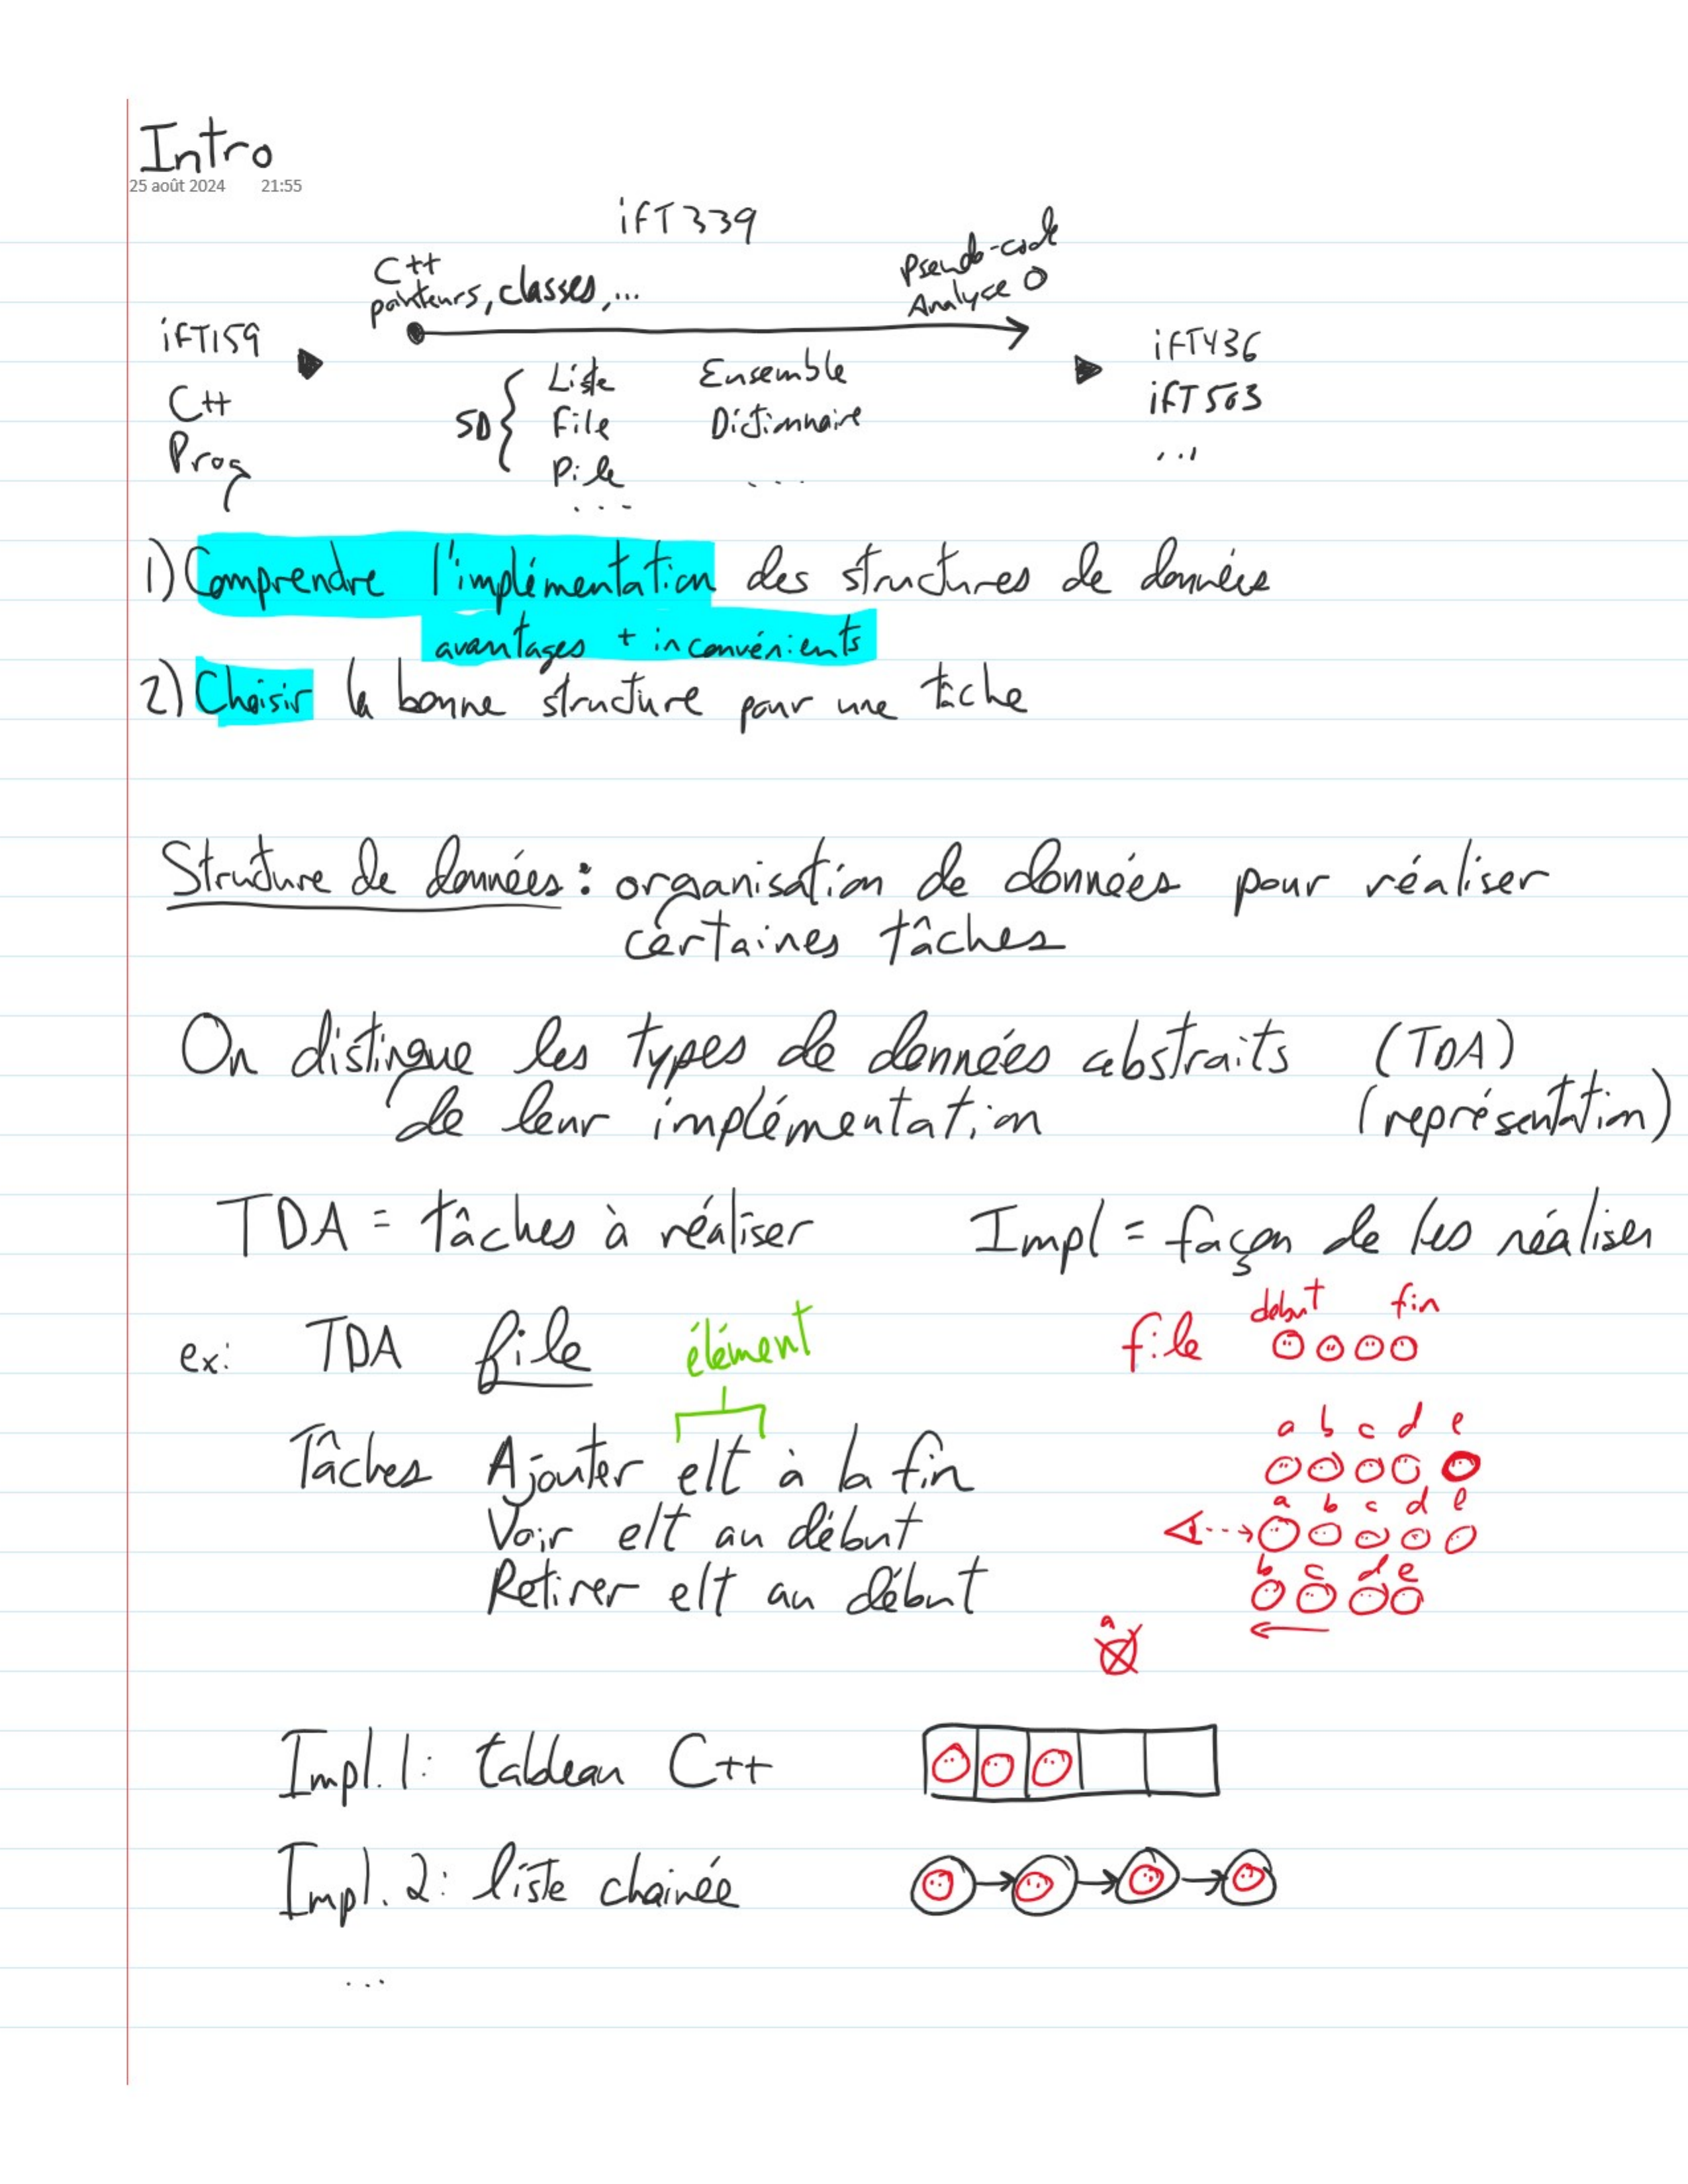 Intro
25 août 2024 21:55
ift339
C++
pointeurs, classes, ...
Pseudo-code
Analyse O
ift159
C++
Prog
SD
Liste
File
Pile
...
Ensemble
Dictionnaire
...
ift436
ift503
...
1) Comprendre l'implémentation des structures de données
avantages + inconvénients
2) Choisir la bonne structure pour une tâche
Structure de données : organisation de données pour réaliser
certaines tâches
On distingue les types de données abstraits (TDA)
de leur implémentation (représentation)
TDA = tâches à réaliser Impl = façon de les réaliser
ex: TDA file élément
file début fin
Tâches Ajouter elt à la fin
a b c d e
Voir elt au début
a b c d e
Retirer elt au début
b c d e
a
Impl. 1: tableau C++
Impl. 2: liste chainée
...